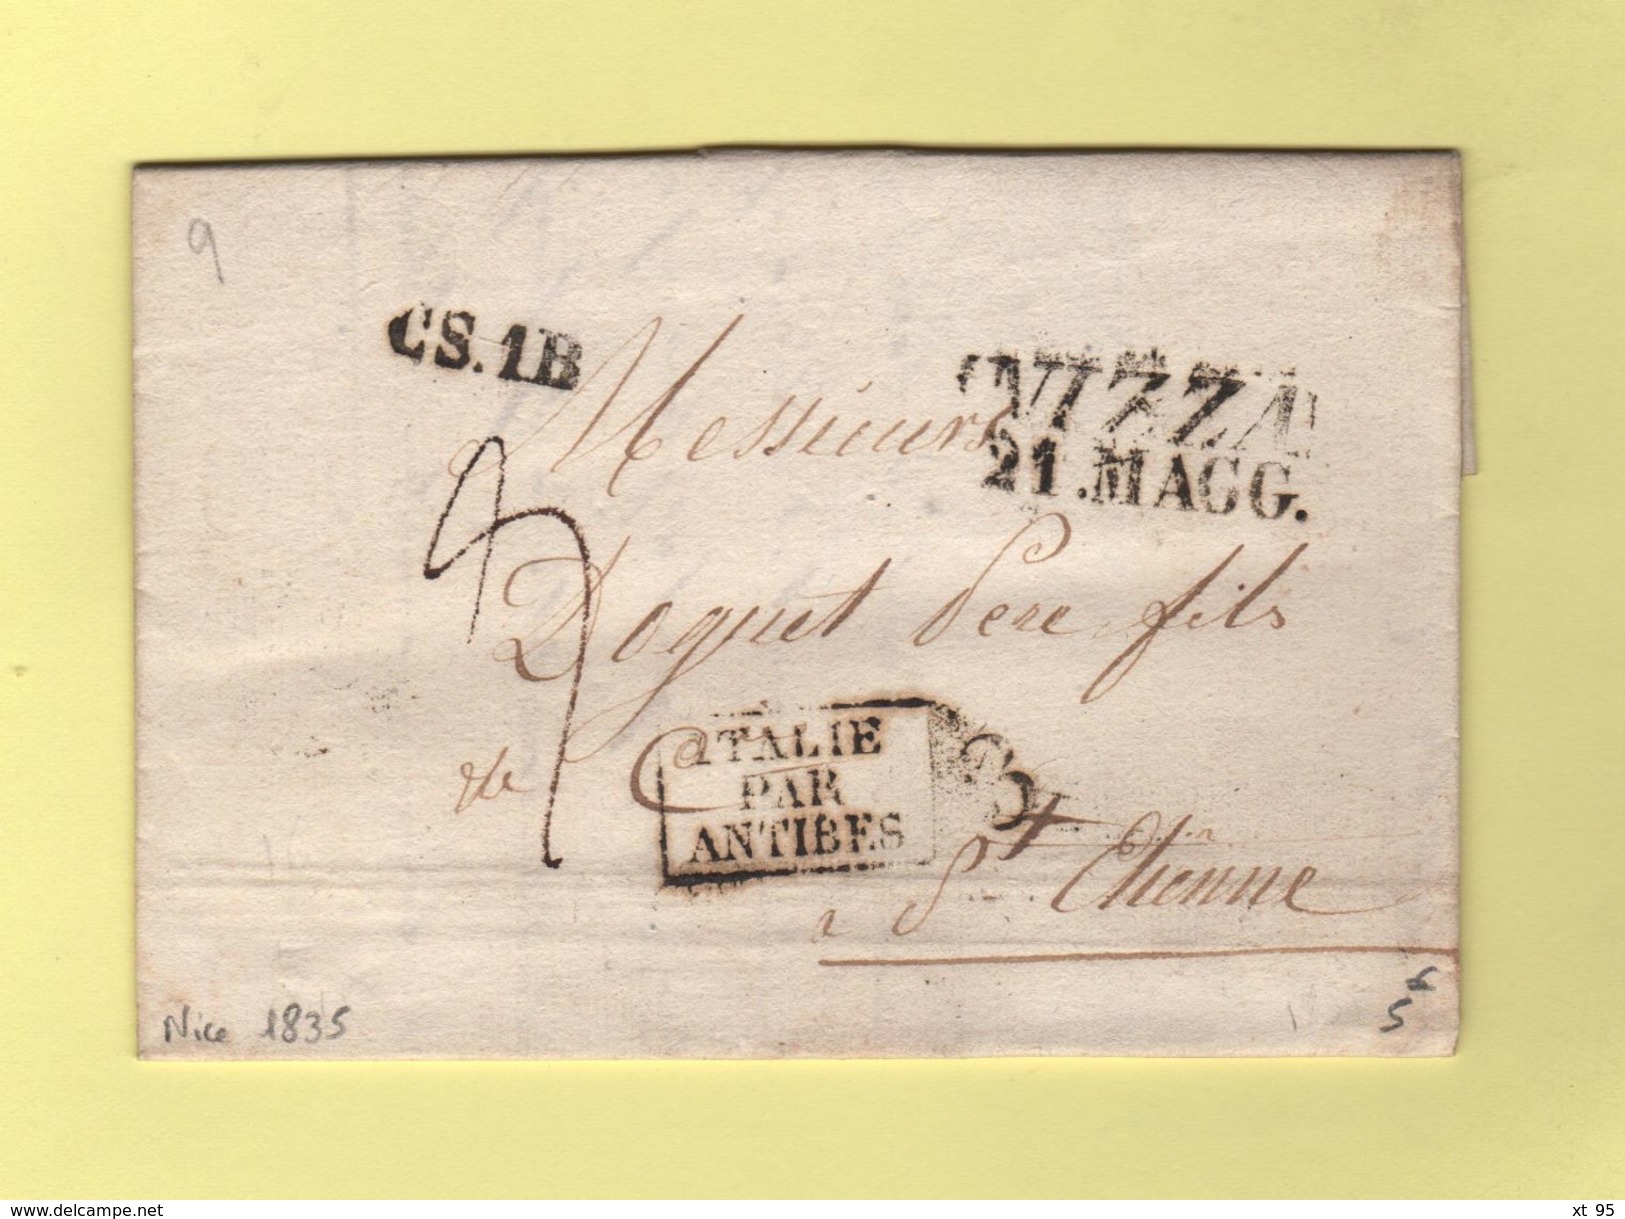 9
CS.1B
NIZZA
21.MAGG.
Messieurs
Doguet Pere fils
de C
ITALIE
PAR
ANTIBES
a St Etienne
Nice 1835
5
www.delcampe.net
xt 95